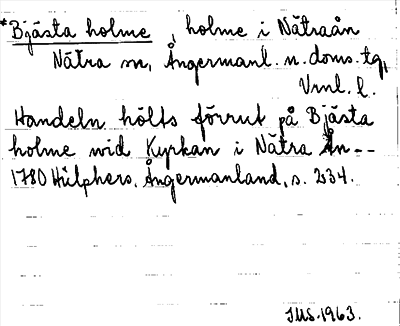 *Bjästa holme, holme i Nätraån
Nätra sn, Ångermanl. n. doms. tg,
Vrnl. l.
Handeln hölts förrut på Bjästa
holme wid Kyrkan i Nätra Ån--
1780 Hülphers, Ångermanland, s. 234.
JMS. 1963.